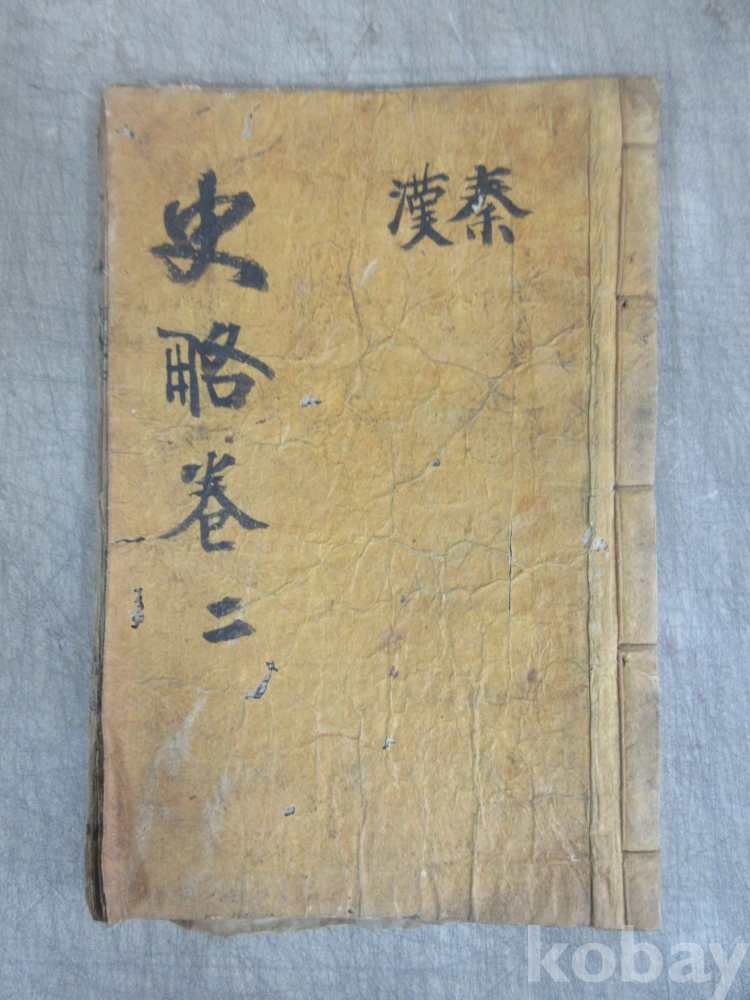 秦漢
史略卷二
kobay